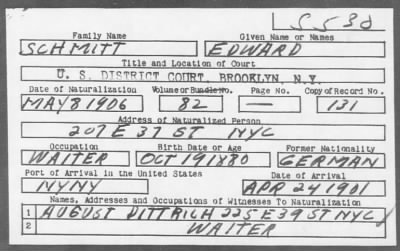 S 530
Family Name Given Name or Names
SCHMITT EDWARD
Title and Location of Court
U. S. DISTRICT COURT, BROOKLYN, N.Y.
Date of Naturalization Volume or Bundle No. Page No. Copy of Record No.
MAY 8 1906 82 — 131
Address of Naturalized Person
207 E 37 ST NYC
Occupation Birth Date or Age Former Nationality
WAITER OCT 19 1880 GERMAN
Port of Arrival in the United States Date of Arrival
NYNY APR 24 1901
Names, Addresses and Occupations of Witnesses To Naturalization
1 AUGUST DITTRICH 225 E 39 ST NYC
2 WAITER